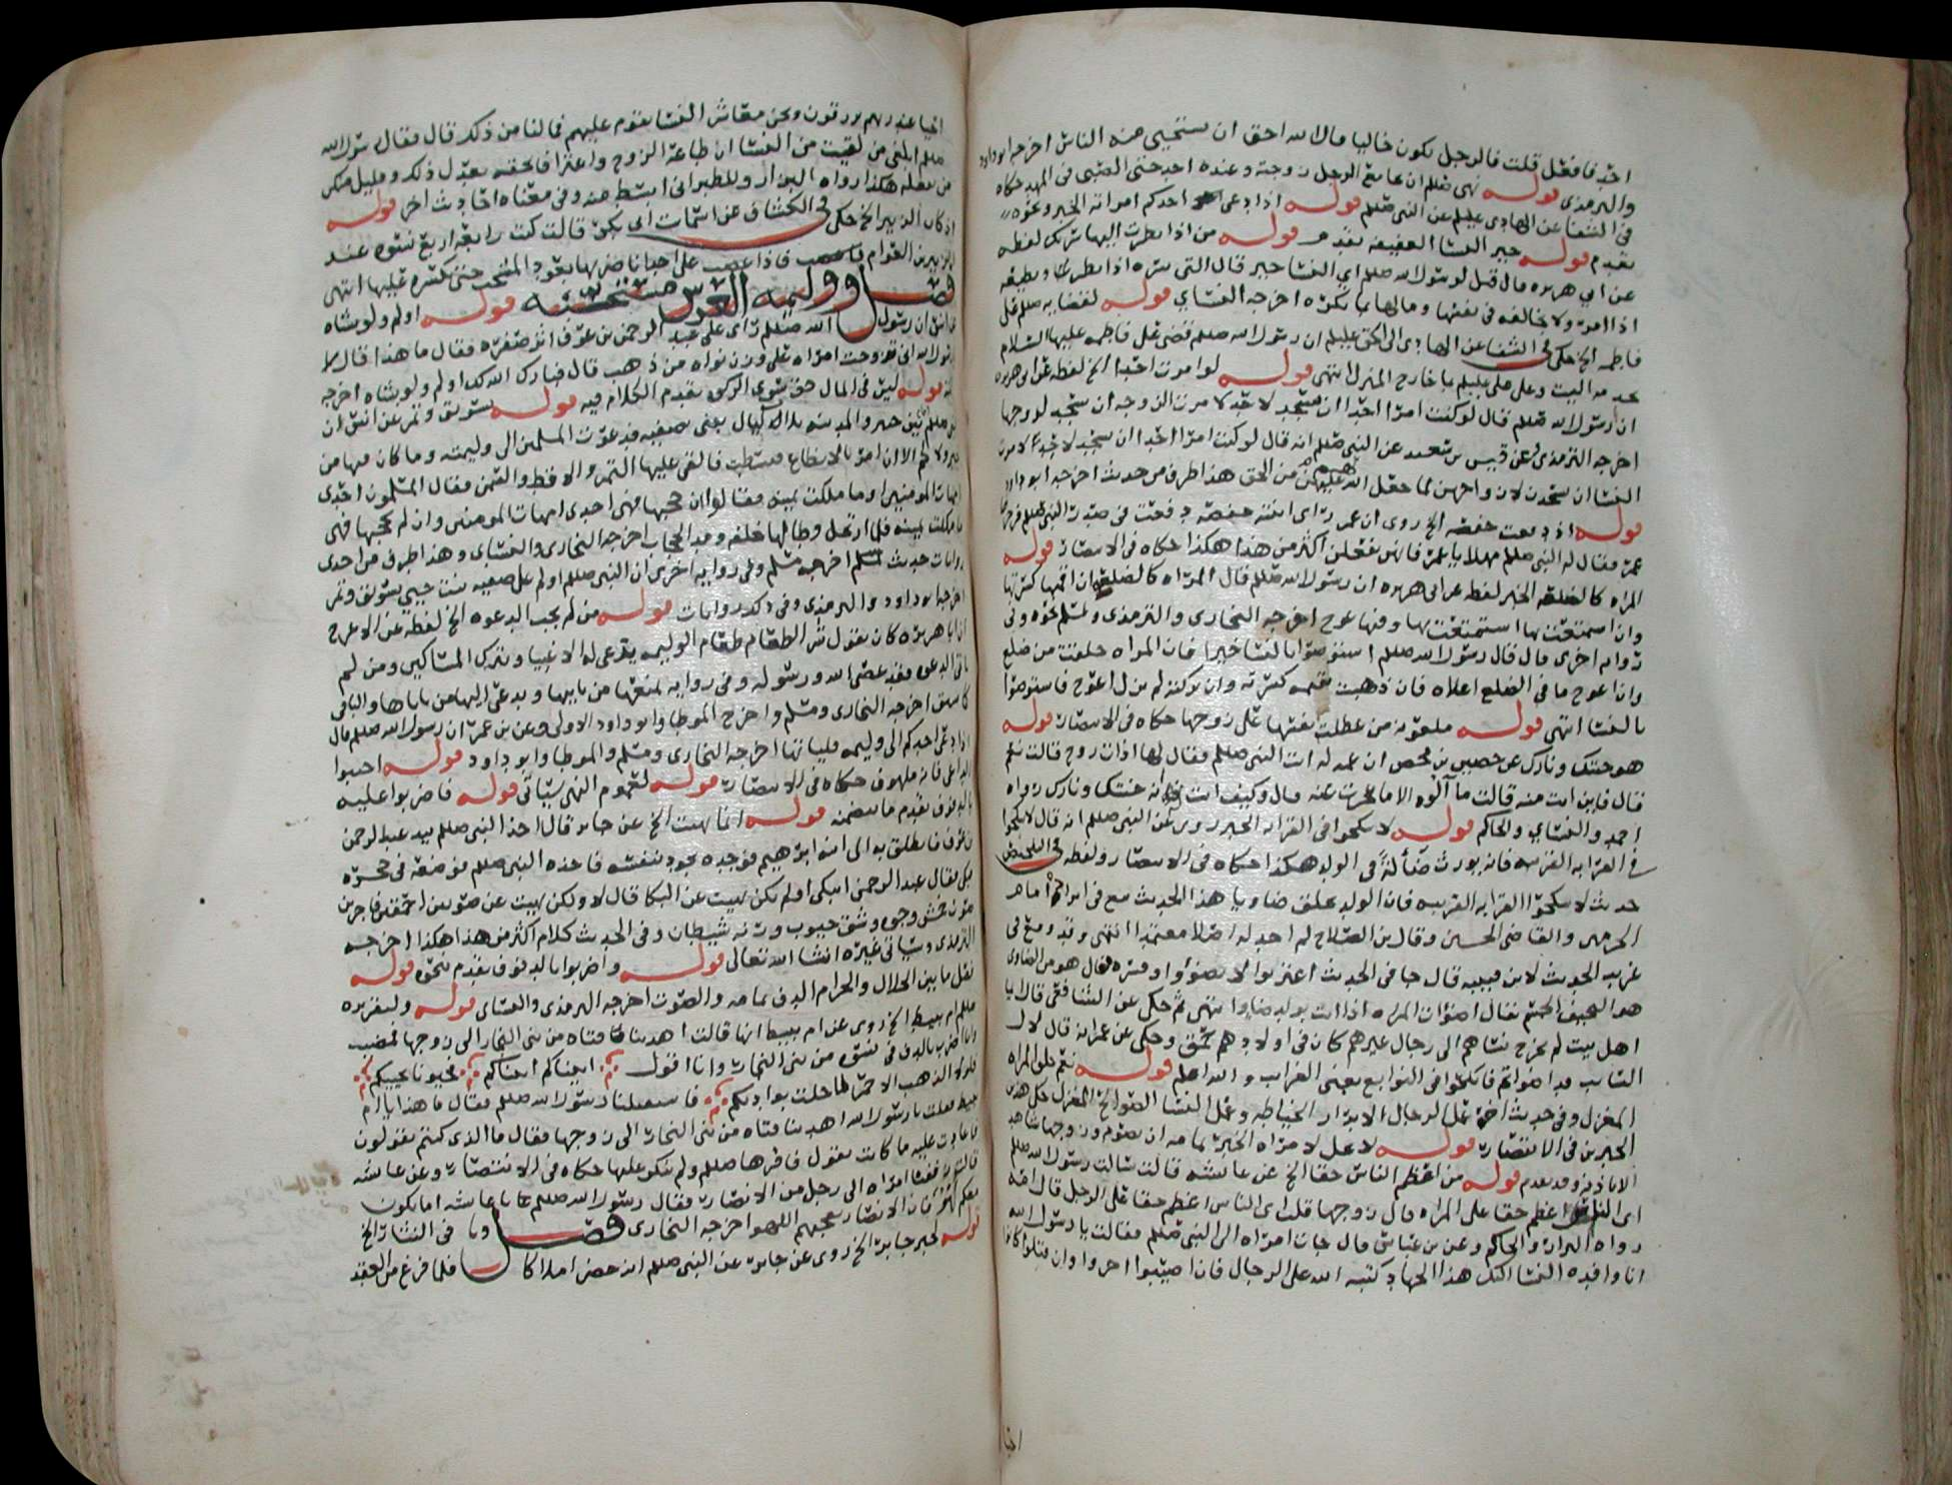 احد فافعل قلت فالرجل يكون خاليا قال الله احق ان يستحيى منه الناس اخرجه ابو داود
والترمذي قوله نهى صللم ان يجامع الرجل زوجته وعنده احد حتى الصبي في المهد حكاه
في الشفا عن الهادي عليلم عن النبي صللم قوله اذا دعى احدكم امراته الخبر ونحوه
تقدم قوله خير النسا العفيفة تقدم قوله من اذا نظرت اليها سرتك لفظه
عن ابي هريره قال قيل لرسول الله صللم اي النسا خير قال التي تسره اذا نظر وتطيعه
اذا امر ولا تخالفه في نفسها ومالها بما يكره اخرجه النسائي قوله لقضايه صللم على
فاطمه الخ حكى في الشفا عن الهادي الى الحق عليلم ان رسول الله صللم قضى على فاطمه عليها السلام
بخدمة البيت وعلى علي عليلم بما خارج المنزل انتهى قوله لو امرت احدا الخ لفظه عن ابي هريره
ان رسول الله صللم قال لو كنت امرا احدا ان يسجد لاحد لامرت الزوجه ان تسجد لزوجها
اخرجه الترمذي وعن قيس بن سعد عن النبي صللم انه قال لو كنت امرا احدا ان يسجد لاحد لامرت
النسا ان يسجدن لازواجهن لما جعل الله لهم عليهن من الحق هذا طرف من حديث اخرجه ابو داود
قوله اذ دفعت حفصه الخ روى ان عمر راى ابنته حفصه دفعت في صدر النبي صللم فزجرها
عمر فقال له النبي صللم مهلا يا عمر فانهن يفعلن اكثر من هذا هكذا حكاه في الانتصار قوله
المراه كالضلع الخبر لفظه عن ابي هريره ان رسول الله صللم قال المراه كالضلع ان اقمتها كسرتها
وان استمتعت بها استمتعت بها وفيها عوج اخرجه البخاري والترمذي ولمسلم نحوه وفي
روايه اخرى قال قال رسول الله صللم استوصوا بالنسا خيرا فان المراه خلقت من ضلع
وان اعوج ما في الضلع اعلاه فان ذهبت تقيمه كسرته وان تركته لم يزل اعوج فاستوصوا
بالنسا انتهى قوله ملعونه من عطلت نفسها على زوجها حكاه في الانتصار قوله
هو جنتك ونارك عن حصين بن محصن ان عمه له اتت النبي صللم فقال لها اذات زوج قالت نعم
قال فاين انت منه قالت ما آلوه الا ما عجزت عنه قال وكيف انت له فانه جنتك ونارك رواه
احمد والنسائي والحاكم قوله لا تنكحوا في القرابه الخبر روي عن النبي صللم انه قال لا تنكحوا
في القرابه القريبه فانه يورث ضالة في الولد هكذا حكاه في الانتصار ولفظه في التلخيص
حديث لا تنكحوا القرابه القريبه فان الولد يخلق ضاويا هذا الحديث تبع في ايراده امام
الحرمين والقاضي الحسين وقال بن الصلاح لم اجد له اصلا معتمدا انتهى وقد وقع في
غريب الحديث لابن قتيبه قال جا في الحديث اغتربوا لا تضووا وفسره فقال هو من الضاوي
هو النحيف الجسم يقال اضوات المراه اذا اتت بولد ضاو انتهى ثم حكى عن الشافعي قال ايما
اهل بيت لم يخرج نساهم الى رجال غيرهم كان في اولادهم حمق وحكي عن عمر انه قال لال
السائب قد اضواتم فانكحوا في النوابع يعني الغرايب والله اعلم قوله نعم خلق المراه
المغزل وفي حديث اخر عمل الرجال الابرار الخياطه وعمل النسا الصوالح المغزل حكى هذين
الخبرين في الانتصار قوله لا يحل لامراه الخبر تمامه ان تصوم وزوجها شاهد
الا باذنه وقد تقدم قوله من اعظم الناس حقا الخ عن عائشه قالت سالت رسول الله صللم
اي الناس اعظم حقا على المراه قال زوجها قلت اي الناس اعظم حقا على الرجل قال امه
رواه البزار والحاكم وعن بن عباس قال جات امراه الى النبي صللم فقالت يا رسول الله
انا وافده النسا اليك هذا الجهاد كتبه الله على الرجال فان اصيبوا اجروا وان قتلوا كانوا
احيا
احيا عند ربهم يرزقون ونحن معاشر النسا نقوم عليهم فما لنا من ذلك قال فقال رسول الله
صللم ابلغي من لقيت من النسا ان طاعة الزوج واعترافا بحقه يعدل ذلك وقليل منكن
من يفعله هكذا رواه البزار وللطبراني ابسط منه وفي معناه احاديث اخر قوله
اذ كان الزبير الخ حكى في الكشاف عن اسما بنت ابي بكر قالت كنت رابعة اربع نسوه عند
الزبير بن العوام فاذا غضب على احدانا ضربها بعود المشجب حتى يكسره عليها انتهى
فصل ووليمه العرس مستحبه قوله اولم ولو بشاه
عن انس ان رسول الله صللم راى على عبد الرحمن بن عوف اثر صفره فقال ما هذا قال يا
رسول الله اني تزوجت امراه على وزن نواه من ذهب قال فبارك الله لك اولم ولو بشاه اخرجه
قوله ليس في المال حق سوى الزكوه تقدم الكلام فيه قوله بسويق وتمر عن انس ان
صللم بين خيبر والمدينه ثلاث ليال يبنى بصفيه فدعوت المسلمين الى وليمته وما كان فيها من
خبز ولا لحم الا ان امر بالانطاع فبسطت فالقى عليها التمر والاقط والسمن فقال المسلمون احدى
امهات المومنين او ما ملكت يمينه فقالوا ان حجبها فهي احدى امهات المومنين وان لم يحجبها فهي
ما ملكت يمينه فلما ارتحل وطا لها خلفه ومد الحجاب اخرجه البخاري والنسائي وهذا طرف من احدى
روايات حديث اخرجه مسلم وفي روايه اخرى ان النبي صللم اولم على صفيه بنت حيي بسويق وتمر
اخرجها ابو داود والترمذي وفي ذلك روايات قوله من لم يجب الدعوه الخ لفظه عن الاعرج
ان ابا هريره كان يقول شر الطعام طعام الوليمه يدعى له الاغنيا ويترك المساكين ومن لم
ياتي الدعوه فقد عصى الله ورسوله وفي روايه يمنعها من ياتيها ويدعى اليها من ياباها والباقي
اخرجه البخاري ومسلم واخرج الموطا وابو داود الاولى وعن بن عمر ان رسول الله صللم قال
اذا دعي احدكم الى وليمه فلياتها اخرجه البخاري ومسلم والموطا وابو داود قوله اجيبوا
الداعي فانه ملهوف حكاه في الانتصار قوله لعموم النهي سياتي قوله فاضربوا عليه
بالدفوف تقدم ما يتضمنه قوله انما نهيت الخ عن جابر قال اخذ النبي صللم بيد عبد الرحمن
بن عوف فانطلق به الى ابنه ابرهيم فوجده يجود بنفسه فاخذه النبي صللم فوضعه في حجره
فبكى فقال عبد الرحمن اتبكي اولم تكن نهيت عن البكا قال لا ولكن نهيت عن صوتين احمقين فاجرين
صوت خمش وجوه وشق جيوب ورنه شيطان وفي الحديث كلام اكثر من هذا هكذا اخرجه
الترمذي وسياتي غيره انشا الله تعالى قوله واضربوا بالدفوف تقدم نحوه قوله
فصل ما بين الحلال والحرام الدف تمامه والصوت اخرجه الترمذي والنسائي قوله ولتقريره
صللم ام نبيط الخ روي عن ام نبيط انها قالت اهدينا فتاه من بني النجار الى زوجها فمضيت
وانا اضرب بالدف في نسوه من بني النجار وانا اقول اتيناكم اتيناكم فحيونا نحييكم
فلولا الذهب الاحمر لما حلت بواديكم فاستقبلنا رسول الله صللم فقال ما هذا يا ام
نبيط فقلت يا رسول الله اهدينا فتاه من بني النجار الى زوجها فقال ما الذي كنتم تقولون
فاعادت عليه ما كانت تقول فاقرها صللم ولم ينكر عليها حكاه في الانتصار وعن عائشه
قالت زففنا امراه الى رجل من الانصار فقال رسول الله صللم يا عائشه اما يكون
معكم لهو فان الانصار يعجبهم اللهو اخرجه البخاري فصل وما في النثار الخ
قوله لخبر جابر الخ روي عن جابر عن النبي صللم انه حضر املاكا فلما فرغ من العقد